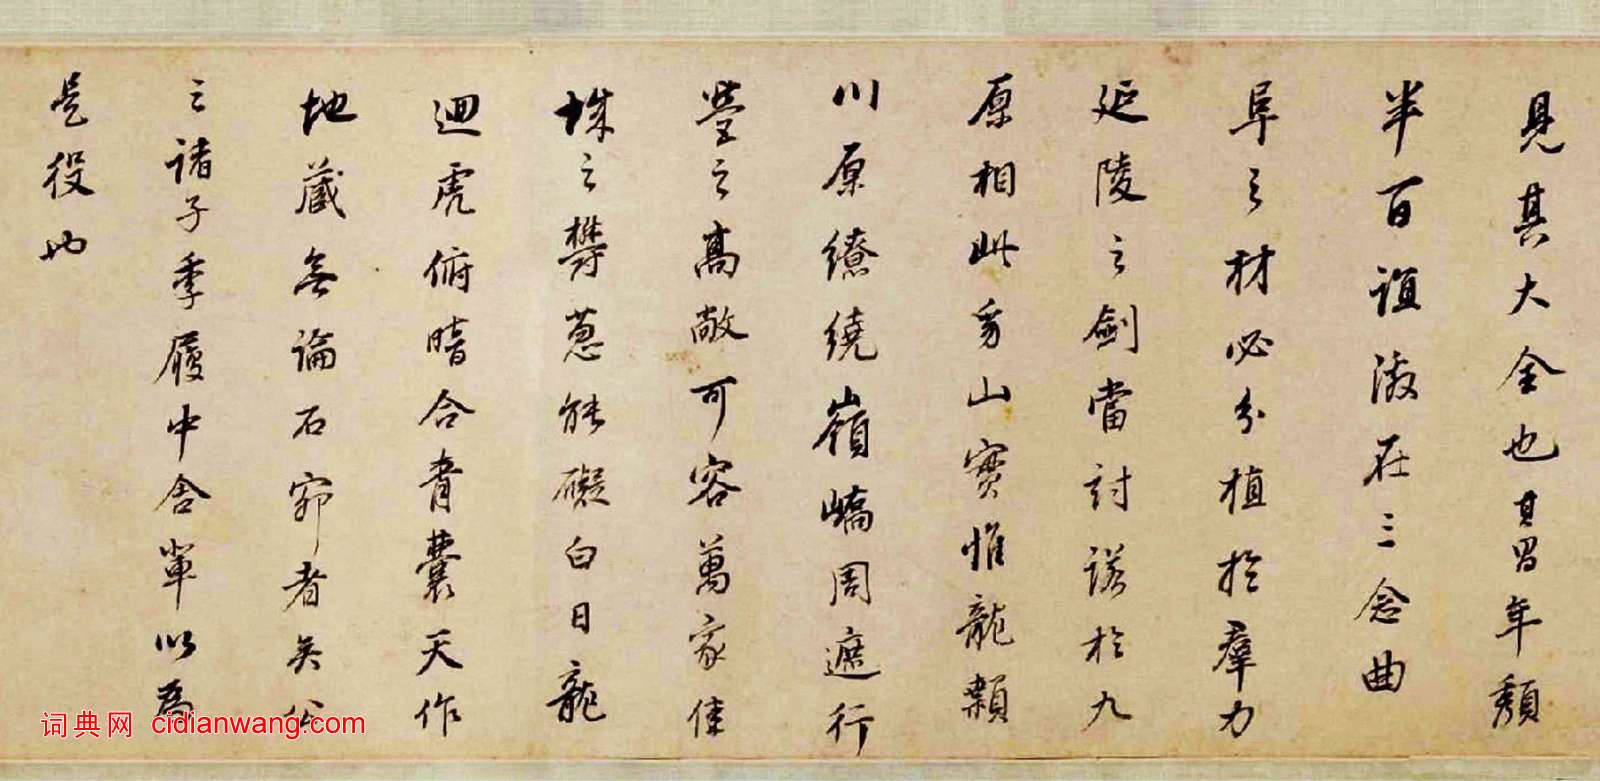 見其大全也其昌年頹
半百誼激在三念曲
阜之材必分植於羣力
延陵之劍當討諾於九
原相此身山實惟龍額
川原繚繞嶺嶠周遮行
塋之高敞可容萬家佳
城之鬱蔥能礙白日龍
迴虎俯暗合青囊天作
地藏無論石者矣公
之諸子季履中舍輩以為
是役也
词典网 cidianwang.com